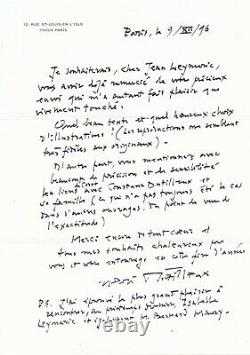 12, RUE ST-LOUIS-EN-L'ISLE
75004 PARIS
Paris, le 9/XII/96
Je souhaiterais, cher Jean Leymarie,
vous avoir déjà remercié de votre précieux
envoi qui m'a autant fait plaisir que
vivement touché.
Quel beau texte et quel heureux choix
d'illustrations! (Les reproductions me semblent
très fidèles aux originaux).
D'autre part, vous mentionnez avec
beaucoup de précision et de sensibilité
les liens avec Constant Dutilleux et
sa famille (ce que n'a pas toujours été le cas
dans d'autres ouvrages. Du point de vue de
l'exactitude).
Merci encore de tout cœur et
tous mes souhaits chaleureux pour
vous et votre entourage en cette fin d'année
Henri Dutilleux
P.S. J'ai éprouvé le plus grand plaisir à
rencontrer, au printemps dernier, Isabelle
Leymarie et également M. Bernard Maury.